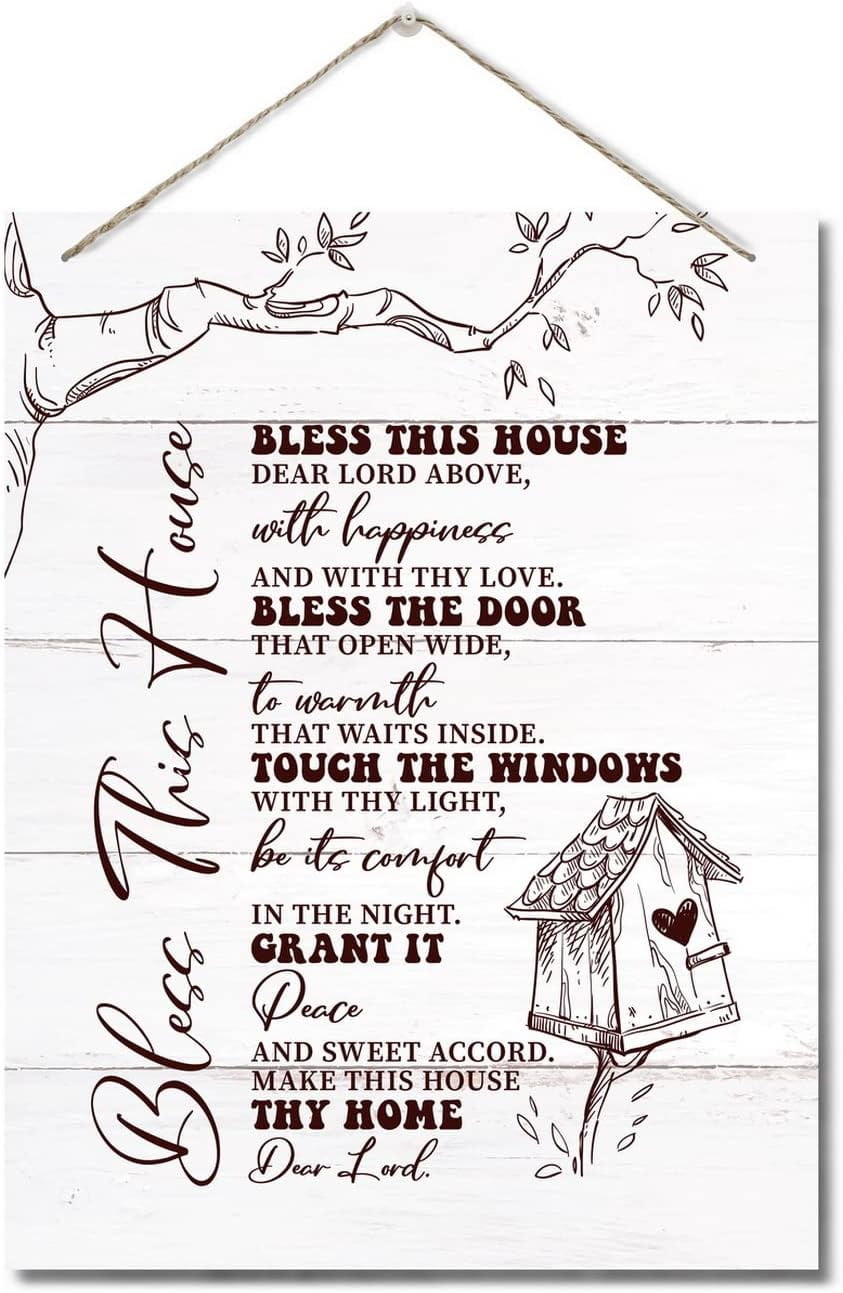 Bless This House
BLESS THIS HOUSE
DEAR LORD ABOVE,
with happiness
AND WITH THY LOVE.
BLESS THE DOOR
THAT OPEN WIDE,
to warmth
THAT WAITS INSIDE.
TOUCH THE WINDOWS
WITH THY LIGHT,
be its comfort
IN THE NIGHT.
GRANT IT
Peace
AND SWEET ACCORD.
MAKE THIS HOUSE
THY HOME
Dear Lord.